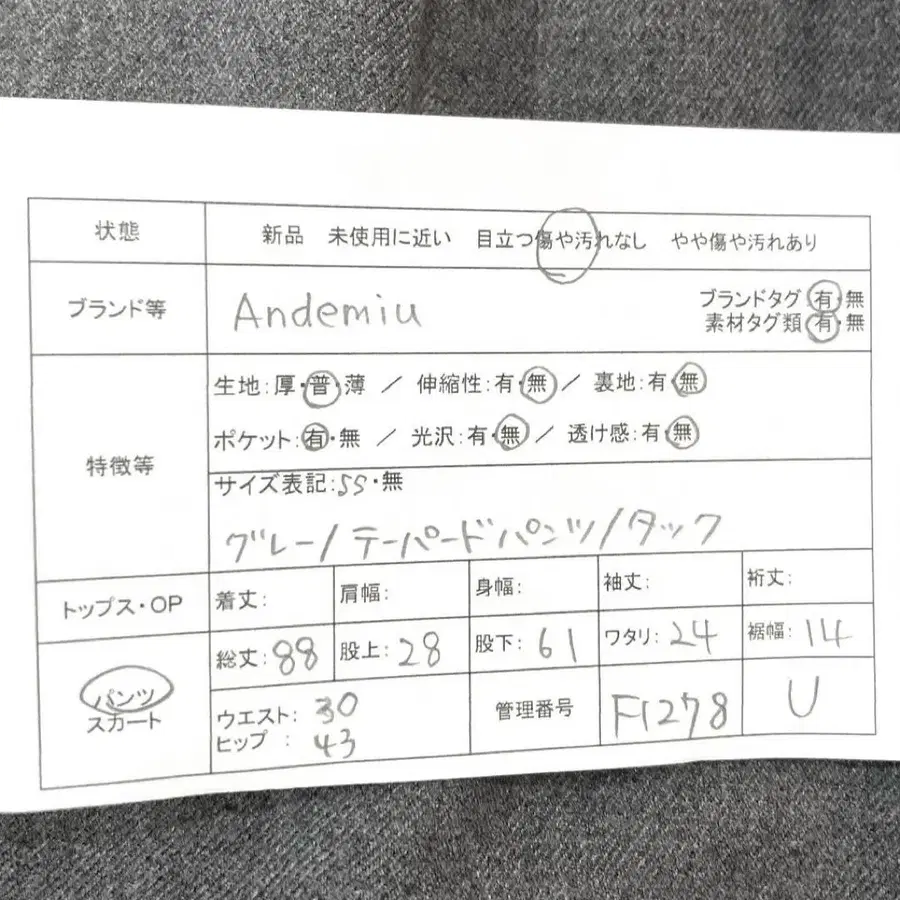 状態 新品 未使用に近い 目立つ傷や汚れなし やや傷や汚れあり
ブランド等 Andemiu ブランドタグ 有・無
素材タグ類 有・無
特徴等
生地:厚・普・薄 / 伸縮性:有・無 / 裏地:有・無
ポケット:有・無 / 光沢:有・無 / 透け感:有・無
サイズ表記:SS・無
グレー/テーパードパンツ/タック
トップス・OP 着丈: 肩幅: 身幅: 袖丈: 裄丈:
パンツ
スカート
総丈:88 股上:28 股下:61 ワタリ:24 裾幅:14
ウエスト:30
ヒップ:43
管理番号 F1278 U